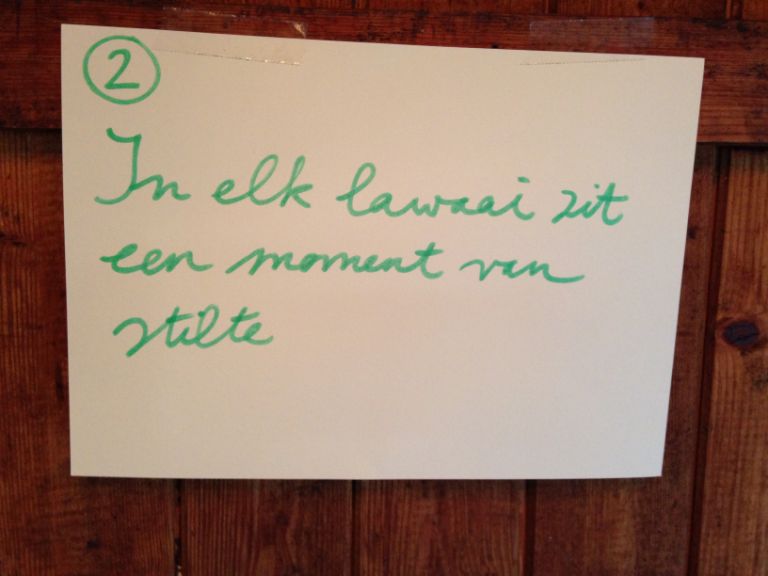 2
In elk lawaai zit
een moment van
stilte